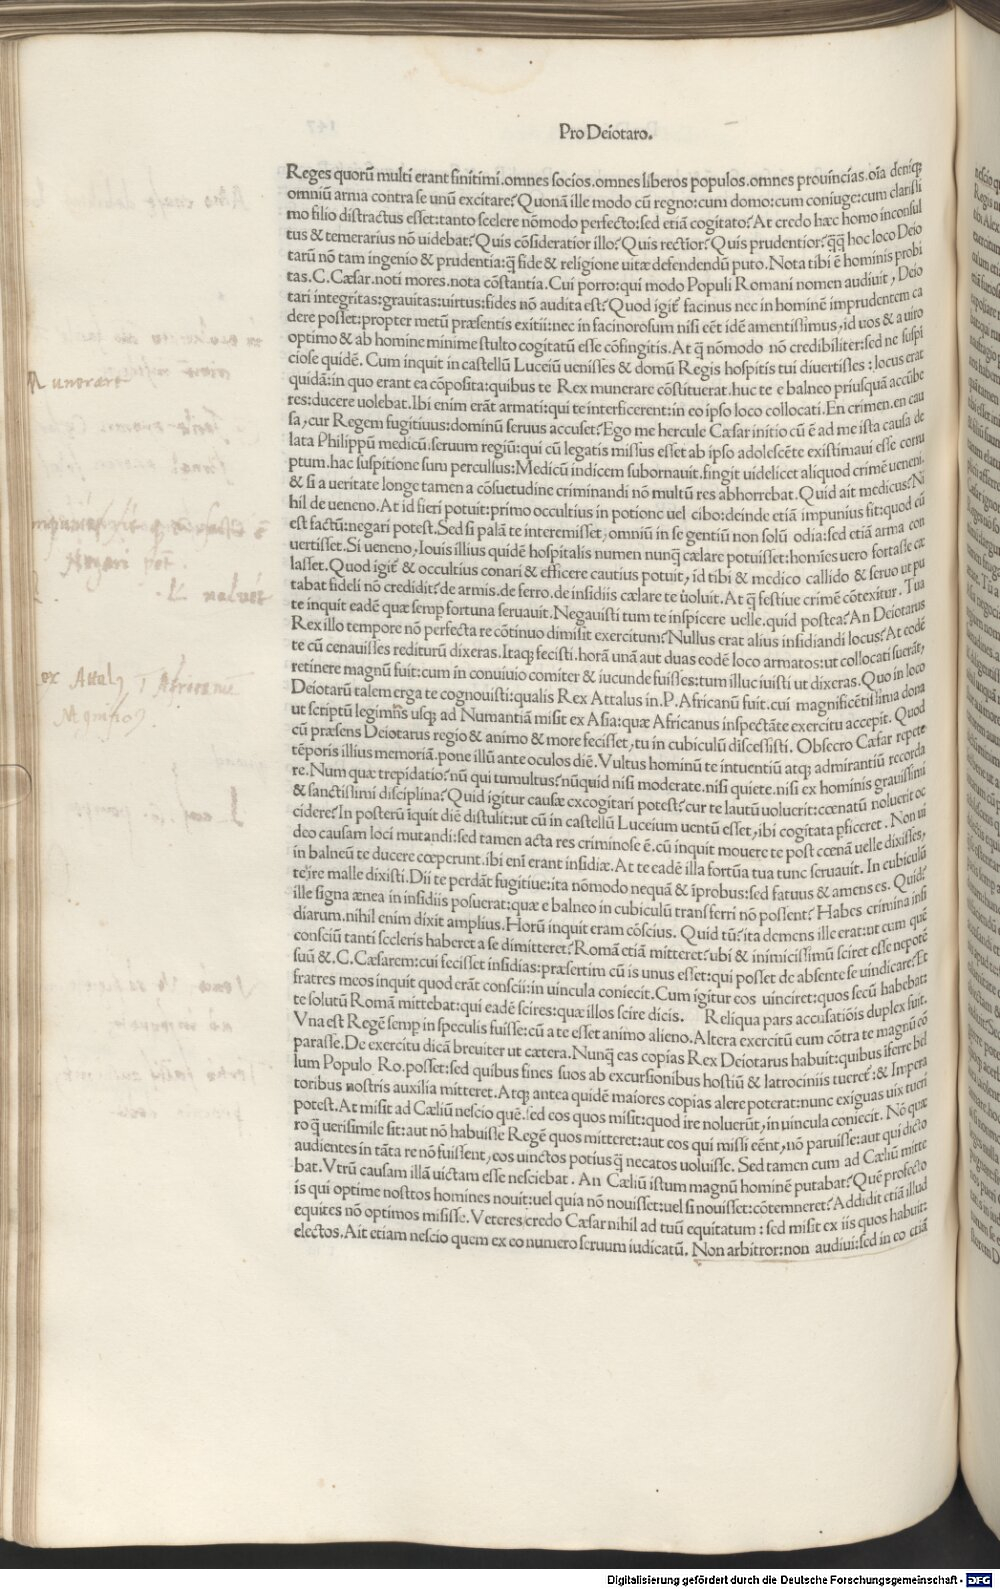 Pro Deiotaro.
Reges quorũ multi erant finitimi.omnes socios.omnes liberos populos.omnes prouincias.oĩa deniq;
omniũ arma contra se unũ excitare? Quonã ille modo cũ regno:cum domo:cum coniuge:cum clarissi
mo filio distractus esset:tanto scelere nõmodo perfecto:sed etiã cogitato? At credo hæc homo inconsul
tus & temerarius nõ uidebat? Quis cõsideratior illo? Quis rectior? Quis prudentior? q̃q̃ hoc loco Deio
tarũ nõ tam ingenio & prudentia:q̃ fide & religione uitæ defendendũ puto. Nota tibi ẽ hominis probi
tas. C. Cæsar. noti mores. nota cõstantia. Cui porro:qui modo Populi Romani nomen audiuit, Deio
tari integritas:grauitas:uirtus:fides nõ audita est? Quod igit̃ facinus nec in hominẽ imprudentem ca
dere posset:propter metũ præsentis exitii:nec in facinorosum nisi eẽt idẽ amentissimus, id uos & a uiro
optimo & ab homine minime stulto cogitatũ esse cõfingitis. At q̃ nõmodo nõ credibiliter:sed ne suspi
ciose quidẽ. Cum inquit in castellũ Luceiũ uenisses & domũ Regis hospitis tui diuertisses: locus erat
quidã:in quo erant ea cõposita:quibus te Rex munerare cõstituerat. huc te e balneo priusquã accũbe
res:ducere uolebat. Ibi enim erãt armati:qui te interficerent:in eo ipso loco collocati. En crimen. en cau
sa, cur Regem fugitiuus:dominũ seruus accuset? Ego me hercule Cæsar initio cũ ẽ ad me ista causa de
lata Philippũ medicũ. seruum regiũ:qui cũ legatis missus esset ab ipso adolescẽte existimaui esse corru
ptum. hac suspitione sum perculsus: Medicũ indicem subornauit. fingit uidelicet aliquod crimẽ ueneni.
& si a ueritate longe tamen a cõsuetudine criminandi nõ multũ res abhorrebat. Quid ait medicus? Ni
hil de ueneno. At id fieri potuit:primo occultius in potione uel cibo:deinde etiã impunius fit:quod cũ
est factũ:negari potest. Sed si palã te interemisset, omniũ in se gentiũ non solũ odia:sed etiã arma con
uertisset. Si ueneno, Iouis illius quidẽ hospitalis numen nunq̃ cælare potuisset:homĩes uero fortasse cæ
lasset. Quod igit̃ & occultius conari & efficere cautius potuit, id tibi & medico callido & seruo ut pu
tabat fideli nõ credidit? de armis. de ferro. de insidiis cælare te ũoluit. At q̃ festiue crimẽ cõtexitur. Tua
te inquit eadẽ quæ semp fortuna seruauit. Negauisti tum te inspicere uelle. quid postea? An Deiotarus
Rex illo tempore nõ perfecta re cõtinuo dimisit exercitum? Nullus erat alius insidiandi locus? At eodẽ
te cũ cenauisses rediturũ dixeras. Itaq; fecisti. horã unã aut duas eodẽ loco armatos:ut collocati fuerãt,
retinere magnũ fuit:cum in conuiuio comiter & iucunde fuisses:tum illuc iuisti ut dixeras. Quo in loco
Deiotarũ talem erga te cognouisti:qualis Rex Attalus in. P. Africanũ fuit. cui magnificẽtissima dona
ut scriptũ legimus usq; ad Numantiã misit ex Asia:quæ Africanus inspectãte exercitu accepit. Quod
cũ præsens Deiotarus regio & animo & more fecisset, tu in cubiculũ discessisti. Obsecro Cæsar repete
tẽporis illius memoriã. pone illũ ante oculos diẽ. Vultus hominũ te intuentiũ atq; admirantiũ recorda
re. Num quæ trepidatio? nũ qui tumultus? nũquid nisi moderate. nisi quiete. nisi ex hominis grauissimi
& sanctissimi disciplina? Quid igitur causæ excogitari potest? cur te lautũ uoluerit:cœnatũ noluerit oc
cidere? In posterũ ĩquit diẽ distulit:ut cũ in castellũ Luceium uentũ esset, ibi cogitata pficeret. Non ui
deo causam loci mutandi:sed tamen acta res criminose ẽ. cũ inquit mouere te post cœnã uelle dixisses,
in balneũ te ducere cœperunt. ibi enĩ erant insidiæ. At te eadẽ illa fortũa tua tunc seruauit. In cubiculũ
te ire malle dixisti. Dii te perdãt fugitiue:ita nõmodo nequã & ĩprobus:sed fatuus & amens es. Quid?
ille signa ænea in insidiis posuerat:quæ e balneo in cubiculũ transferri nõ possent? Habes crimina insi
diarum. nihil enim dixit amplius. Horũ inquit eram cõscius. Quid tũ? ita demens ille erat:ut eum quẽ
consciũ tanti sceleris haberet a se dimitteret? Romã etiã mitteret? ubi & inimicissimũ sciret esse nepotẽ
suũ &. C. Cæsarem:cui fecisset insidias:præsertim cũ is unus esset:qui posset de absente se uindicare? Et
fratres meos inquit quod erãt conscii:in uincula coniecit. Cum igitur eos uinciret:quos secũ habebat:
te solutũ Romã mittebat:qui eadẽ scires:quæ illos scire dicis. Reliqua pars accusatiõis duplex fuit.
Vna est Regẽ semp in speculis fuisse:cũ a te esset animo alieno. Altera exercitũ eum cõtra te magnũ cõ
parasse. De exercitu dicã breuiter ut cætera. Nunq̃ eas copias Rex Deiotarus habuit:quibus ĩferre bel
lum Populo Ro. posset:sed quibus fines suos ab excursionibus hostiũ & latrociniis tueret̃:& Impera
toribus nostris auxilia mitteret. Atq; antea quidẽ maiores copias alere poterat:nunc exiguas uix tueri
potest. At misit ad Cæliũ nescio quẽ. sed eos quos misit:quod ire noluerũt, in uincula coniecit. Nõ quæ
ro q̃ uerisimile sit:aut nõ habuisse Regẽ quos mitteret:aut eos qui missi eẽnt, nõ paruisse:aut qui dicto
audientes in tãta re nõ fuissent, eos uinctos potius q̃ necatos uoluisse. Sed tamen cum ad Cæliũ mitte
bat. Vtrũ causam illã uictam esse nesciebat. An Cæliũ istum magnũ hominẽ putabat? Quẽ profecto
is qui optime nostros homines nouit:uel quia nõ nouisset:uel si nouisset:cõtemneret? Addidit etiã illud
equites nõ optimos misisse. Veteres credo Cæsar nihil ad tuũ equitatum: sed misit ex iis quos habuit:
electos. Ait etiam nescio quem ex eo numero seruum iudicatũ. Non arbitror:non audiui:sed in eo etiã
Digitalisierung gefördert durch die Deutsche Forschungsgemeinschaft - DFG